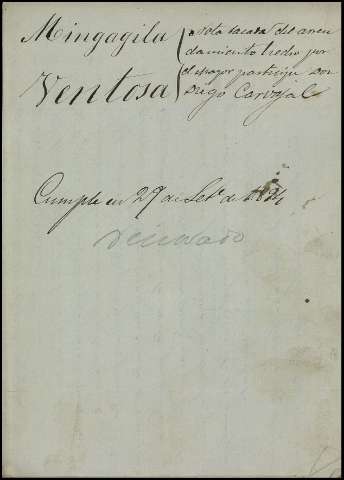 Mingagila
Ventosa
Nota sacada del arren
damiento hecho por
el mayor participe Don
Diego Carvajal
Cumple en 29 de Set.e de